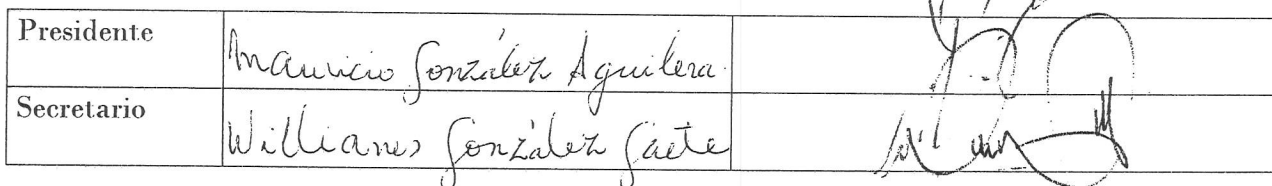 Presidente
Mauricio González Aguilera
Secretario
Williams González Gaete